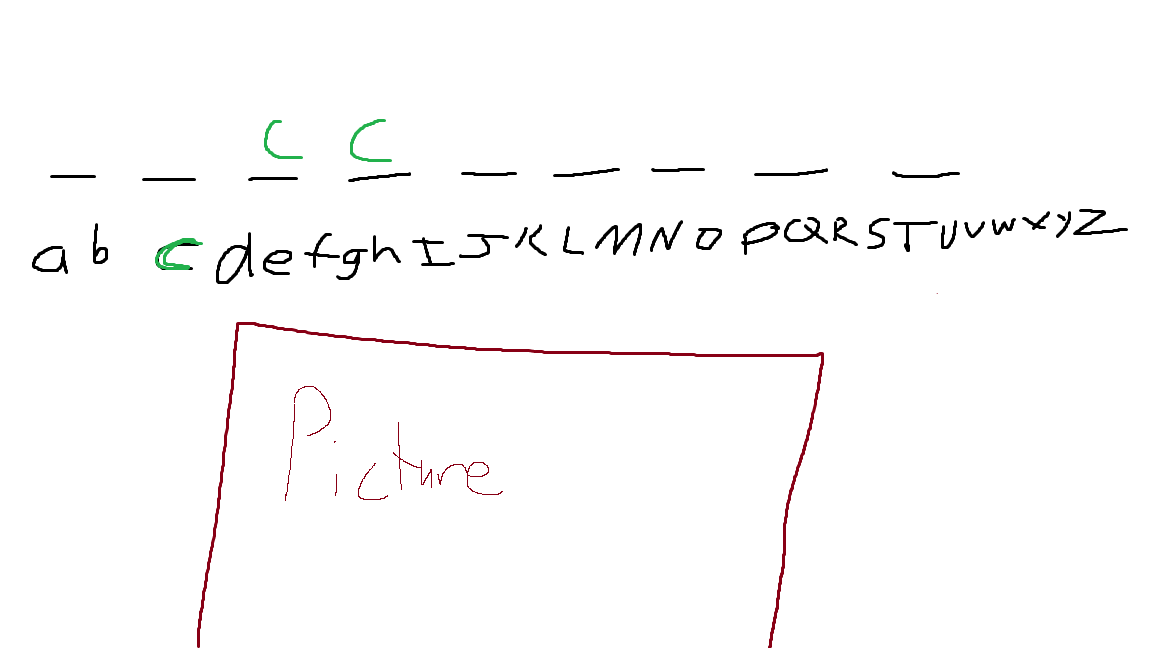 _ _ C C _ _ _ _ _
a b c d e f g h I J K L M N O P Q R S T U V W X Y Z
Picture